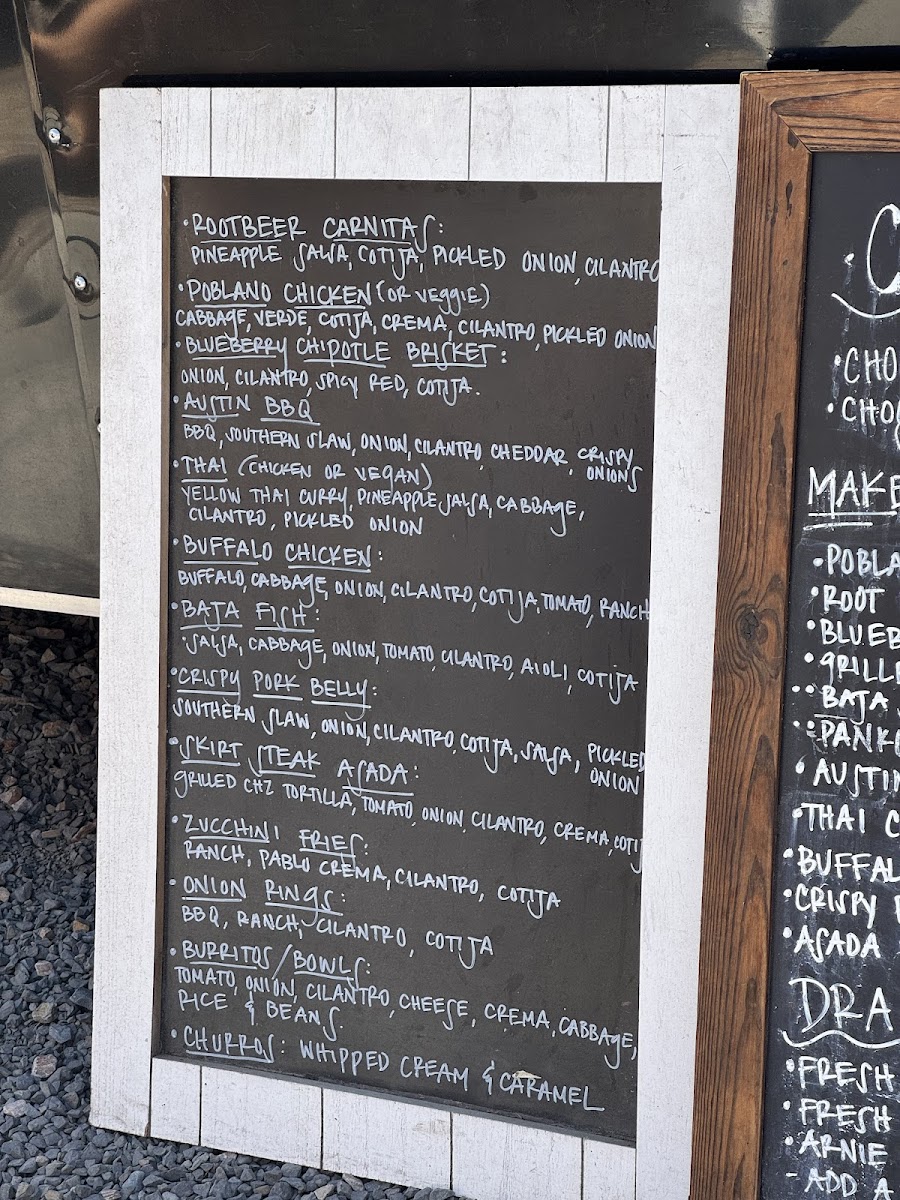 • ROOTBEER CARNITAS:
PINEAPPLE SALSA, COTIJA, PICKLED ONION, CILANTRO
• POBLANO CHICKEN (OR VEGGIE)
CABBAGE, VERDE, COTIJA, CREMA, CILANTRO, PICKLED ONION
• BLUEBERRY CHIPOTLE BRISKET:
ONION, CILANTRO, SPICY RED, COTIJA.
• AUSTIN BBQ
BBQ, SOUTHERN SLAW, ONION, CILANTRO, CHEDDAR, CRISPY
ONIONS
• THAI (CHICKEN OR VEGAN)
YELLOW THAI CURRY, PINEAPPLE SALSA, CABBAGE,
CILANTRO, PICKLED ONION
• BUFFALO CHICKEN:
BUFFALO, CABBAGE, ONION, CILANTRO, COTIJA, TOMATO, RANCH
• BAJA FISH:
SALSA, CABBAGE, ONION, TOMATO CILANTRO, AIOLI, COTIJA
• CRISPY PORK BELLY:
SOUTHERN SLAW, ONION, CILANTRO, COTIJA, SALSA, PICKLED
ONION
• SKIRT STEAK ASADA:
GRILLED CHZ TORTILLA, TOMATO, ONION, CILANTRO, CREMA, COTIJ
• ZUCCHINI FRIES:
RANCH, PABLO CREMA, CILANTRO, COTIJA
• ONION RINGS:
BBQ, RANCH, CILANTRO, COTIJA
• BURRITOS/BOWLS:
TOMATO, ONION, CILANTRO, CHEESE, CREMA, CABBAGE,
RICE & BEANS.
• CHURROS: WHIPPED CREAM & CARAMEL
• CHO
• CHO
MAKE
• POBLA
• ROOT
• BLUEB
• GRILLE
•• BAJA
•• PANKO
• AUSTIN
• THAI C
• BUFFAL
• CRISPY
• ASADA
DRA
• FRESH
• FRESH
• ARNIE
- ADD A